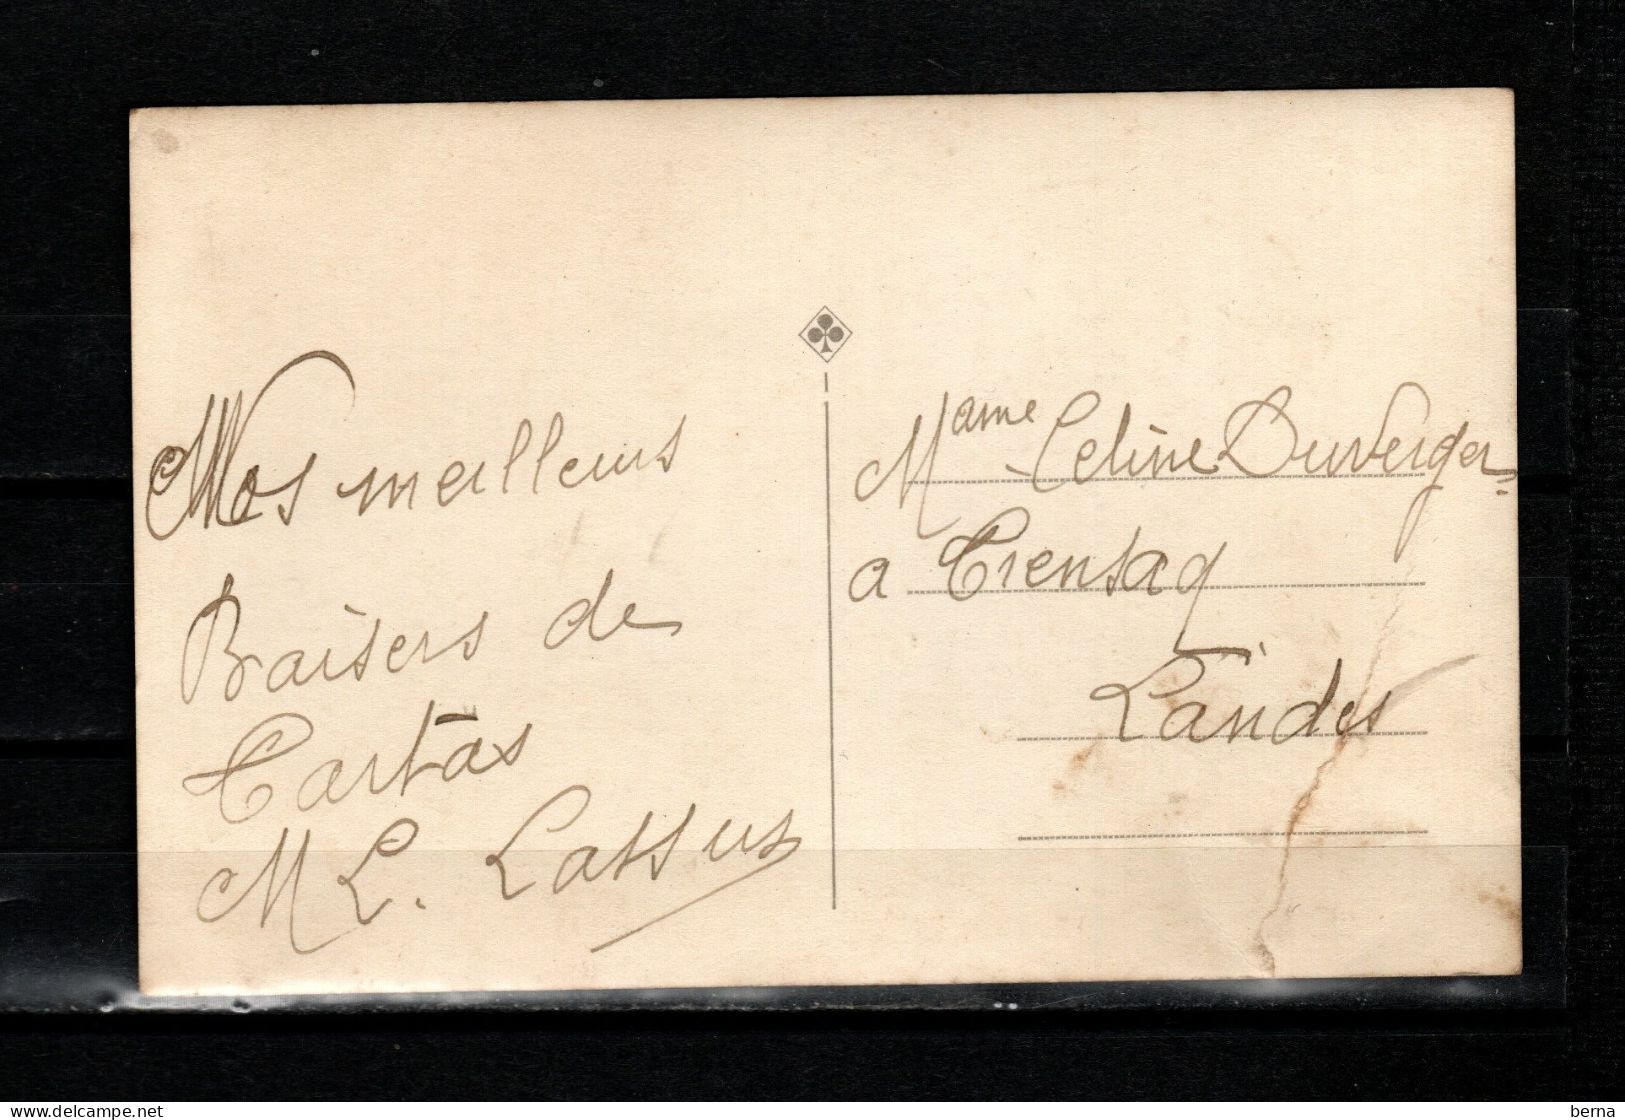 Mos meilleurs
Baisers de
Tartas
M L. Lassus
Mame Celine Duverger
a Trensacq
Landes
delcampe.net
berna